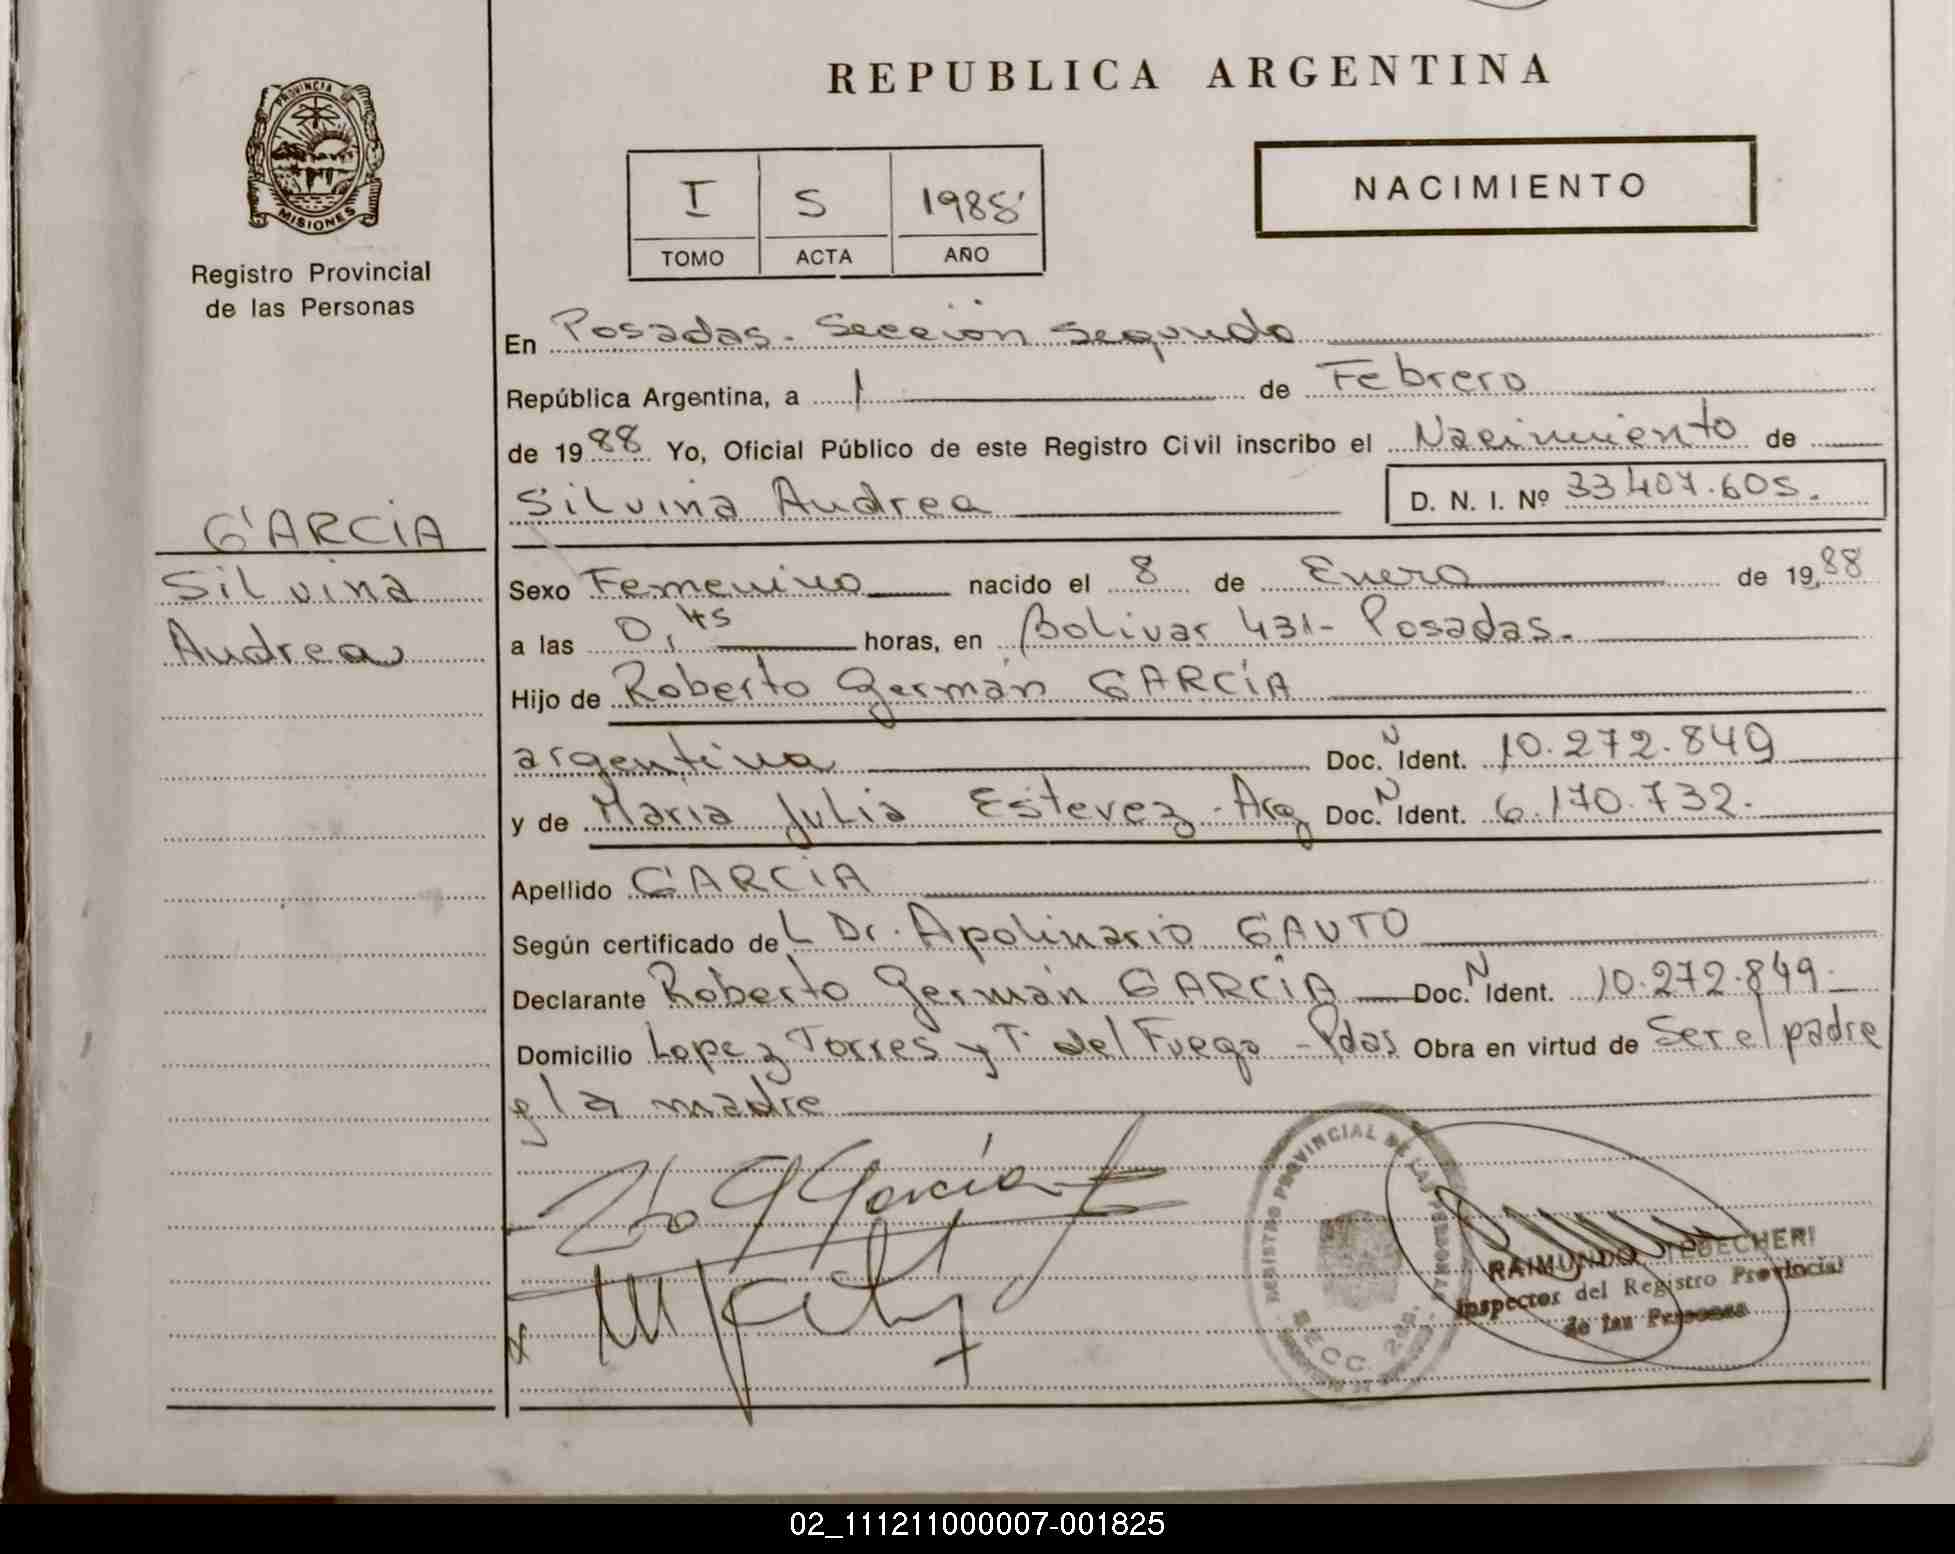 REPUBLICA ARGENTINA
PROVINCIA DE
MISIONES
Registro Provincial
de las Personas
I 5 1988
TOMO ACTA AÑO
NACIMIENTO
En Posadas. Sección Segunda
República Argentina, a 1 de Febrero
de 1988 Yo, Oficial Público de este Registro Civil inscribo el Nacimiento de
Silvina Andrea D. N. I. Nº 33407.605.
GARCIA
Silvina
Andrea
Sexo Femenino nacido el 8 de Enero de 1988
a las 0,45 horas, en Bolivar 431- Posadas.
Hijo de Roberto Germán GARCIA
argentina Doc. N Ident. 10.272.849
y de Maria Julia Estevez - Arg Doc. N Ident. 6.170.732.
Apellido GARCIA
Según certificado del Dr. Apolinario GAUTO
Declarante Roberto Germán GARCIA Doc. N Ident. 10.272.849.
Domicilio Lopez Torres y T. del Fuego - Pdas Obra en virtud de Ser el padre
y la madre
REGISTRO PROVINCIAL DE LAS PERSONAS
SECC. 2da.
RAIMUNDO
Inspector del Registro Provincial
de las Personas
02_111211000007-001825